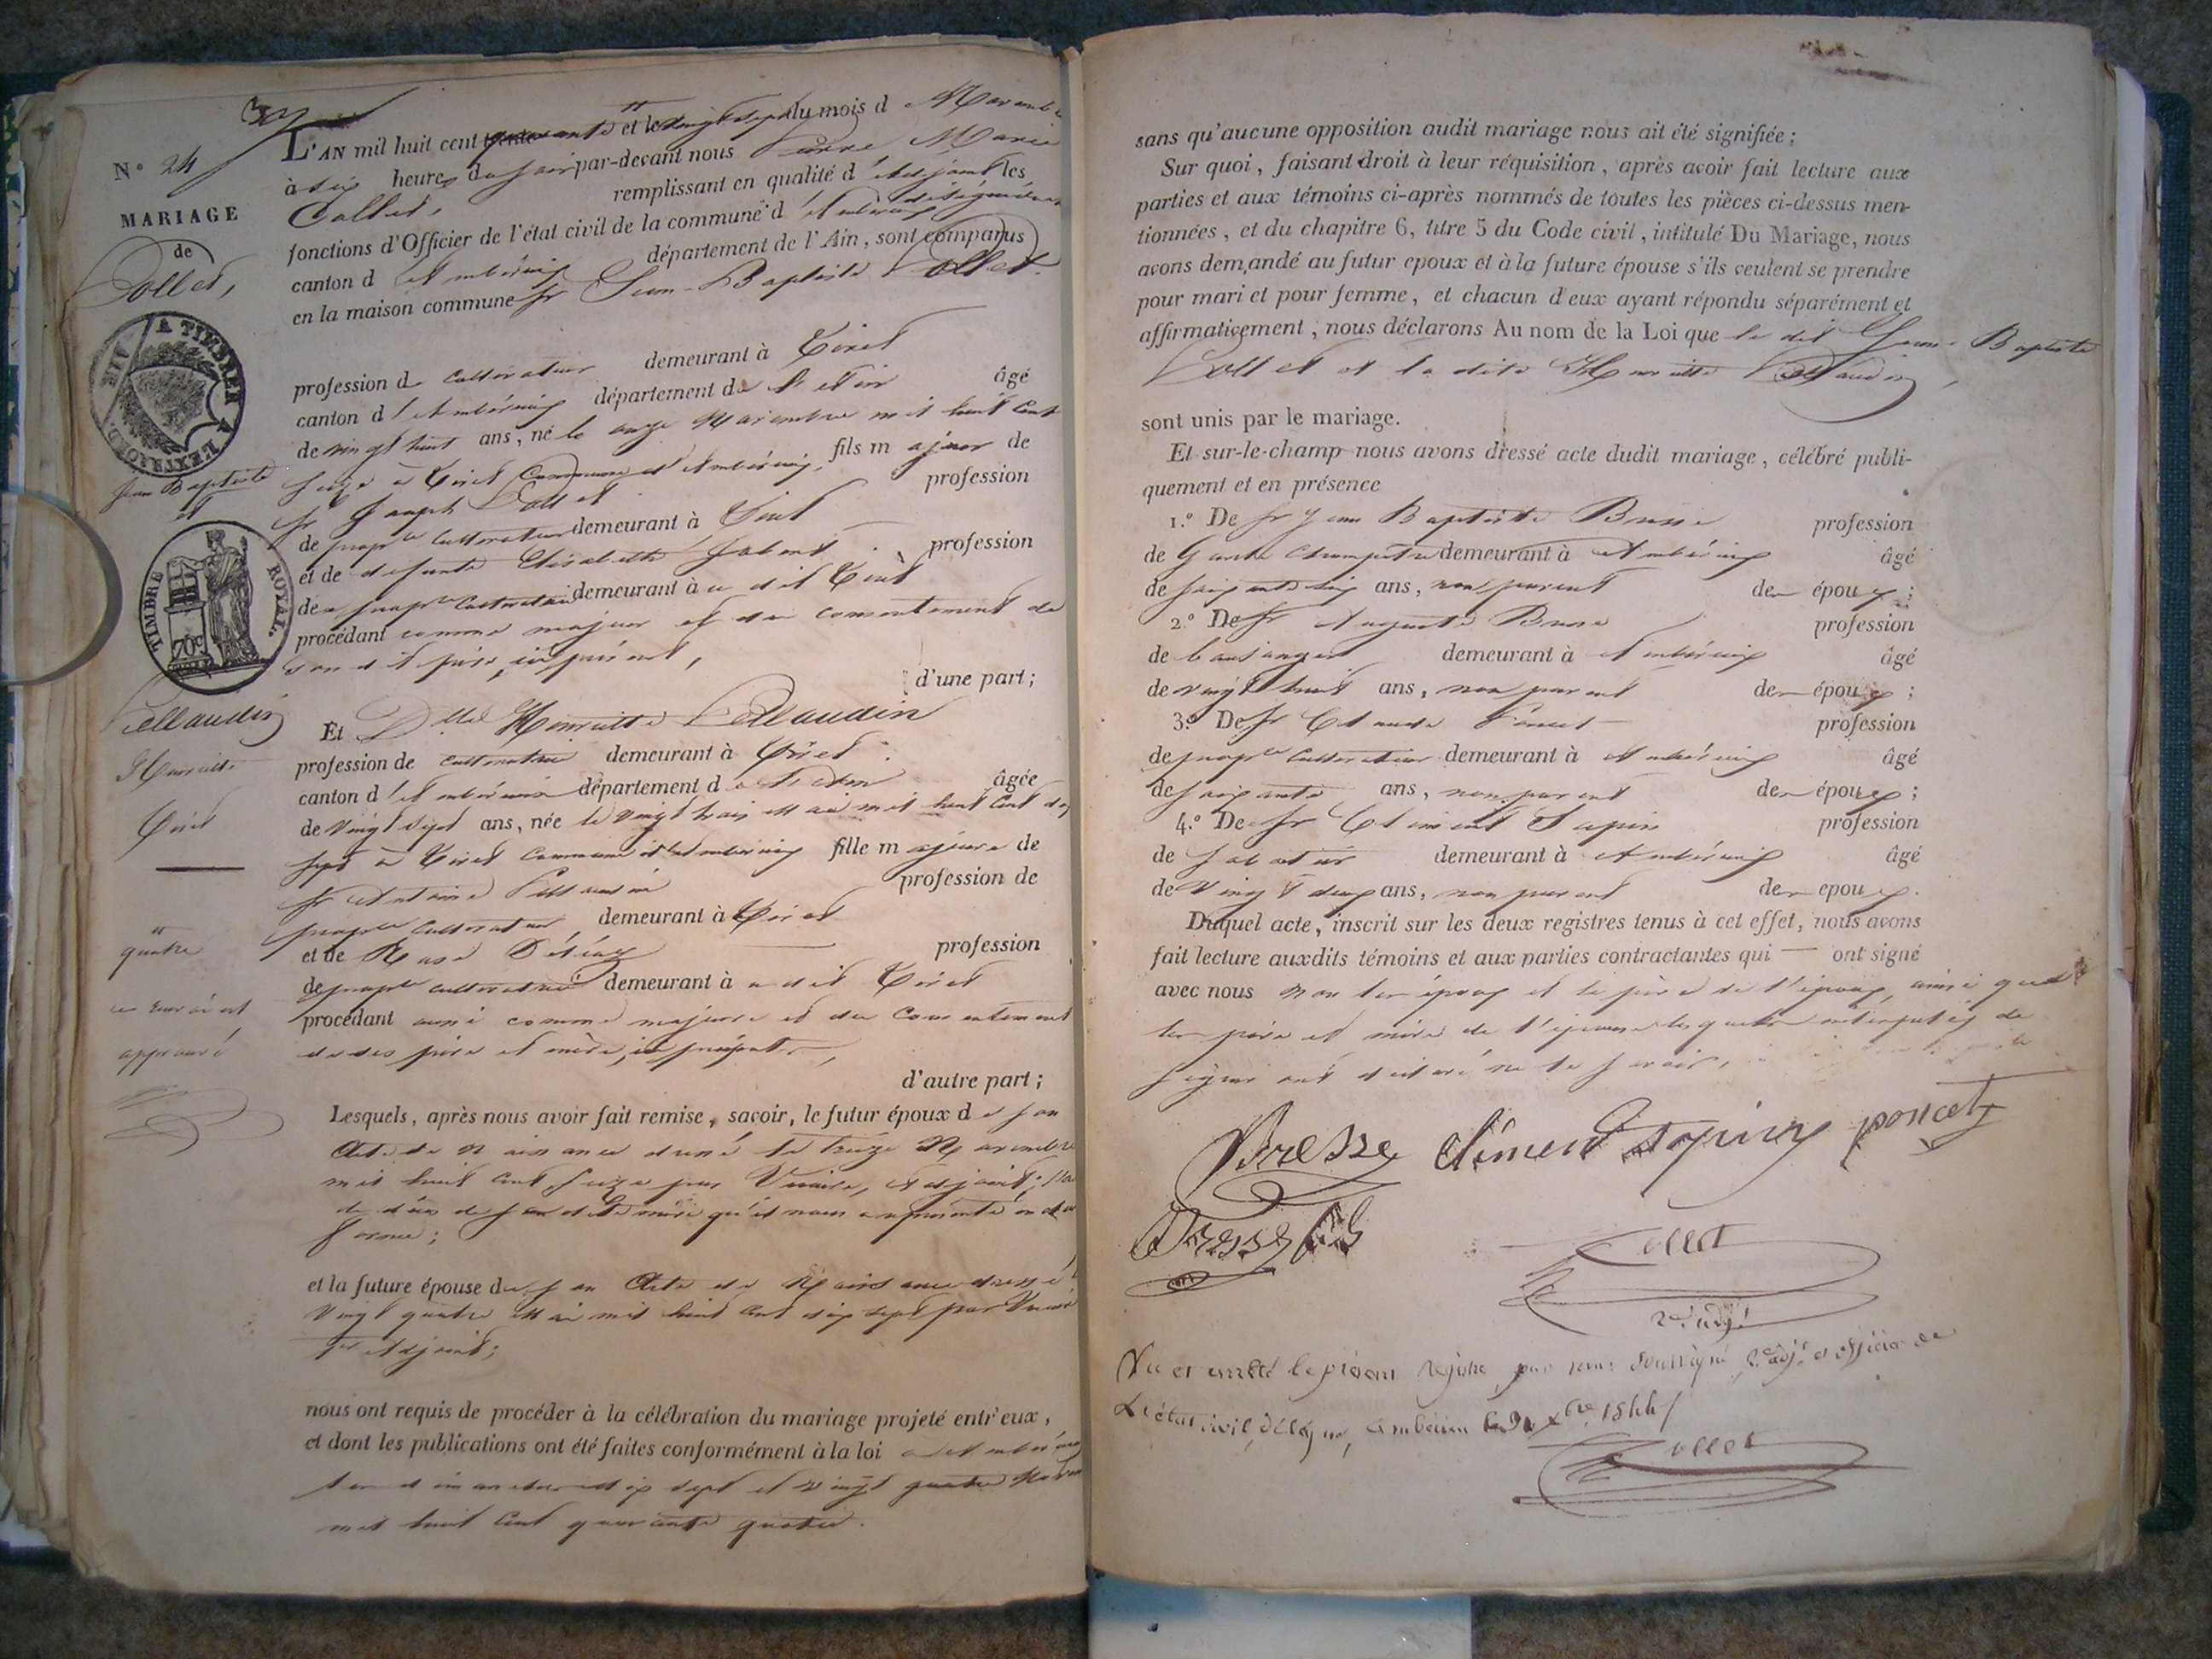 N° 24
MARIAGE
de
Collet,
A TIMBRER A L'EXTRAORD. AIN
Jean Baptiste
et
TIMBRE ROYAL.
70c
Pellaudin
Henriette
quatre
ce renvoi est
approuvé
L'AN mil huit cent quarante et le vingt sept du mois d Novembre
à six heures du soir par-devant nous Pierre Marie
Collet, remplissant en qualité d'adjoint les
fonctions d'Officier de l'état civil de la commune d'Ambérieux
canton d'Ambérieux département de l'Ain, sont comparus
en la maison commune Sr Jean-Baptiste Collet
profession de cultivateur demeurant à
canton d'Ambérieux département de l'Ain âgé
de vingt huit ans, né le onze Novembre mil huit cent
seize à commune d'Ambérieux, fils majeur de
Sr Joseph Collet profession
de propre cultivateur demeurant à
et de defunte Elisabeth profession
de propre cultivatrice demeurant à au dit
procédant comme majeur et du consentement de
son dit père, ici présent,
d'une part;
Et Dlle Henriette Pellaudin
profession de cultivatrice demeurant à
canton d'Ambérieux département de l'Ain âgée
de vingt sept ans, née le vingt trois Mai mil huit cent dix
sept à commune d'Ambérieux fille majeure de
Sr Antoine Pellaudin profession de
propre cultivateur, demeurant à
et de Rose profession
de propre cultivatrice demeurant à au dit
procédant aussi comme majeure et du consentement
de ses père et mère, ici présents,
d'autre part;
Lesquels, après nous avoir fait remise, savoir, le futur époux de son
Acte de Naissance dressé le treize Novembre
mil huit cent seize par adjoint;
de décès de sa dite mère qu'il nous a représenté en
forme;
et la future épouse de son Acte de Naissance dressé
vingt quatre Mai mil huit cent dix sept par
Adjoint;
nous ont requis de procéder à la célébration du mariage projeté entr'eux,
et dont les publications ont été faites conformément à la loi à Ambérieux
les dimanches dix sept et vingt quatre
mil huit cent quarante quatre.
sans qu'aucune opposition audit mariage nous ait été signifiée;
Sur quoi, faisant droit à leur réquisition, après avoir fait lecture aux
parties et aux témoins ci-après nommés de toutes les pièces ci-dessus men-
tionnées, et du chapitre 6, titre 5 du Code civil, intitulé Du Mariage, nous
avons demandé au futur epoux et à la future épouse s'ils veulent se prendre
pour mari et pour femme, et chacun d'eux ayant répondu séparément et
affirmativement, nous déclarons Au nom de la Loi que le dit Jean-Baptiste
Collet et la dite Henriette Pellaudin,
sont unis par le mariage.
Et sur-le-champ nous avons dressé acte dudit mariage, célébré publi-
quement et en présence
1.° De Sr Jean Baptiste Bresse profession
de Garde Champêtre demeurant à Ambérieux âgé
de ans, non parent des époux;
2.° De Sr Auguste Bresse profession
de boulanger demeurant à Ambérieux âgé
de vingt huit ans, non parent des époux;
3.° De Sr Claude Poncet profession
de propre cultivateur demeurant à Ambérieux âgé
de soixante ans, non parent des époux;
4.° De Sr Clément Sapin profession
de demeurant à Ambérieux âgé
de vingt deux ans, non parent des epoux.
Duquel acte, inscrit sur les deux registres tenus à cet effet, nous avons
fait lecture auxdits témoins et aux parties contractantes qui — ont signé
avec nous non les époux et le père de l'époux, ainsi que
les père et mère de l'épouse lesquels interpelés de
signer ont déclaré ne le savoir.
Bresse Clément Sapin poncet
Bresse fils
Collet
2e adjt
Vu et arrêté le présent registre par nous soussigné, 2e adjt et officier de
l'état civil délégué, Ambérieu xbre 1844
Collet